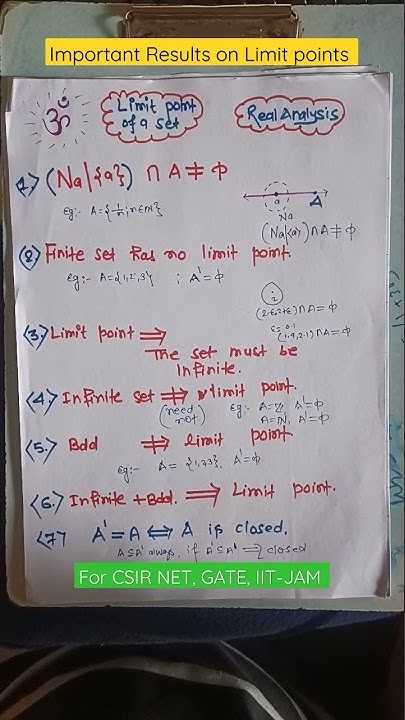 Important Results on Limit points
ॐ
Limit point of a set
Real Analysis
<1> (Na\{a}) ∩ A ≠ φ
Eg:- A={1/n; n∈N}
a
A
Na
(Na\{a})∩A≠φ
<2> Finite set has no limit point.
Eg:- A={1,2,3} ; A'=φ
2
(2-ε,2+ε)∩A=φ
ε=0.1
(1.9,2.1)∩A=φ
<3.> Limit point ⟹
The set must be
Infinite.
<4> Infinite set ⇏ limit point.
(need not)
Eg:- A=Z, A'=φ
A=N, A'=φ
<5.> Bdd ⇏ limit point
Eg:- A= {1,73}, A'=φ
<6.> Infinite +Bdd. ⟹ Limit point.
<7> A'=A ⟺ A is closed.
A⊆A' always, if A'⊆A' ⟹ closed
For CSIR NET, GATE, IIT-JAM